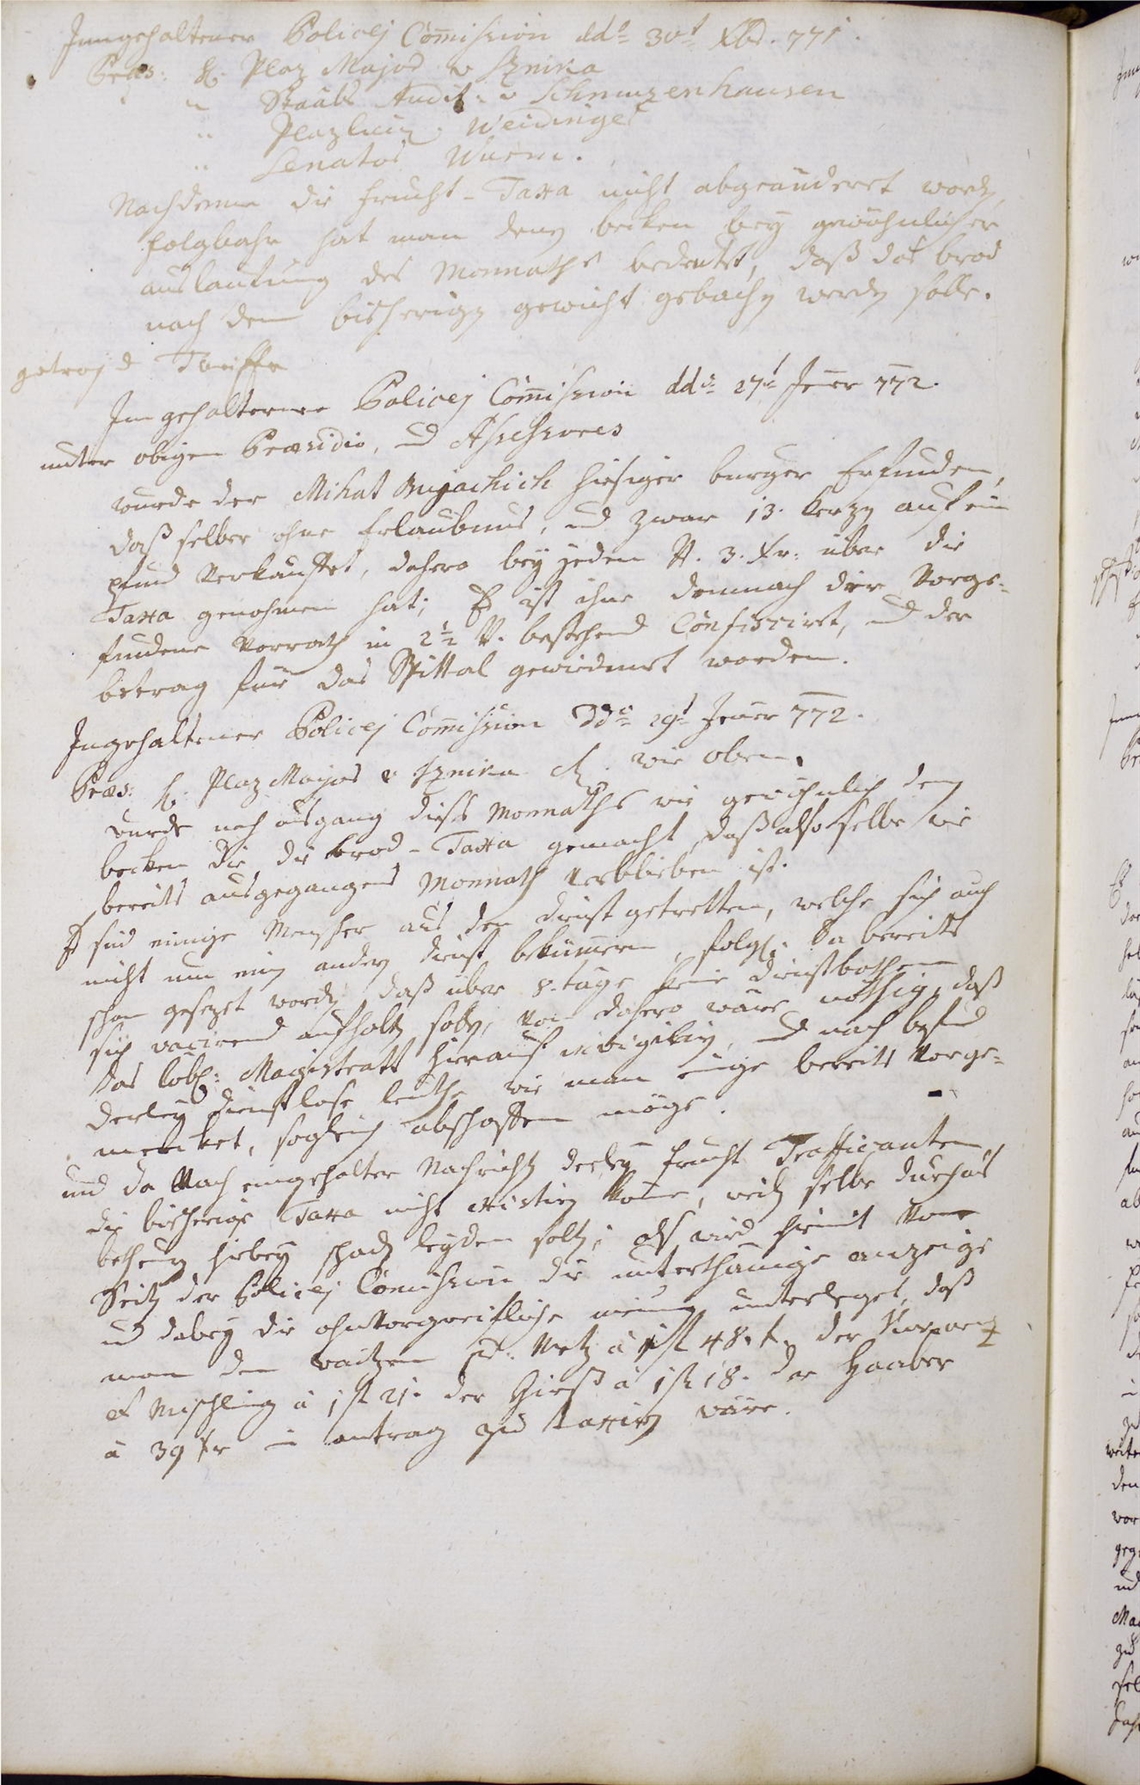 Inngehaltener Policej Comission ddo 30t Xbr. 771.
Præs: H. Plaz Major v Sznika
" Staabs Audit: v Schmuzenhausen
" Plazlieut. Weidinger
" Senator Wurm.
Nachdeme die frucht-Taxa nicht abgeänderet word,
folgbahr hat man deny becken beÿ gewöhnlicher
auslautung des Monnaths bedeutet, daß das brod
nach dem bisherigen gewicht gebachen werden solle.
Tariffa
Inn gehaltener Policej Comission ddo 27t Jener 772.
unter obigem Præsidio, und Assessores
wurde der Mihat hiesiger burger Erfunden,
daß selber ohne Erlaubnus, und zwar 13. Kerzen auf ein
pfund Verkauffet, dahero beÿ jedem ℔. 3. Xr: über die
Taxa genohmen hat; Es ist ihme demnach der Vorge-
fundene Vorrath in 2½ ℔. bestehend Confisciret, und der
betrag für das Spittal gewiedmet worden.
Ingehaltener Policej Comission ddo 29t Jener 772.
Præs: H: Plaz Major v Sznika wie oben.
wurde nach ausgang dises Monnaths wie gewöhnlich deny
becken die brod-Taxa gemacht, daß also selbe wie
bereits ausgegangenes Monnath verblieben ist.
Es sind einige Menscher aus den dienst getretten, welche sich auch
nicht um einen andern dienst bekümmern, folgl: da bereits
schon gesezet worden daß über 8. täge keine dienstbothen
sich vacirend aufhalten sollen, von dahero wäre nöthig, daß
das löbl: Magistratt hierauf invigilire, und nach befund
derleÿ dienstlose leuthe wie man einige bereits Vorge-
mercket, sogleich abschaffen möge.
und da Nach eingeholter Nachricht derleÿ frucht Trafficanten
die bisherige Taxa nicht existiren könne, weilen selbe durchaus
hiebeÿ schaden leÿden solten; als wird hiemit von
Seiten der Policej Comission die unterthänige anzeige
und dabeÿ die ohnVorgreifliche meinung unterleget, daß
man den waitzen pr. Metz à 1f 48. x. der
et Mischling à 1f 21. der Hirß à 1f 18. der Haaber
à 39 Xr in antrag zu taxiren wäre.